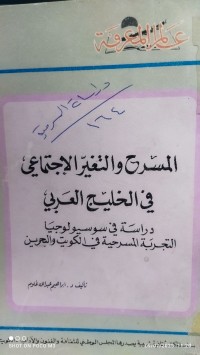 عالم المعرفة
دراسات المسرح
١٦٤
المسرح والتغير الاجتماعي
في الخليج العربي
دراسة في سوسيولوجيا
التجربة المسرحية في الكويت والبحرين
تأليف: د. ابراهيم عبدالله غلوم
يصدرها المجلس الوطني للثقافة والفنون والآداب
SHOT ON POCO M2